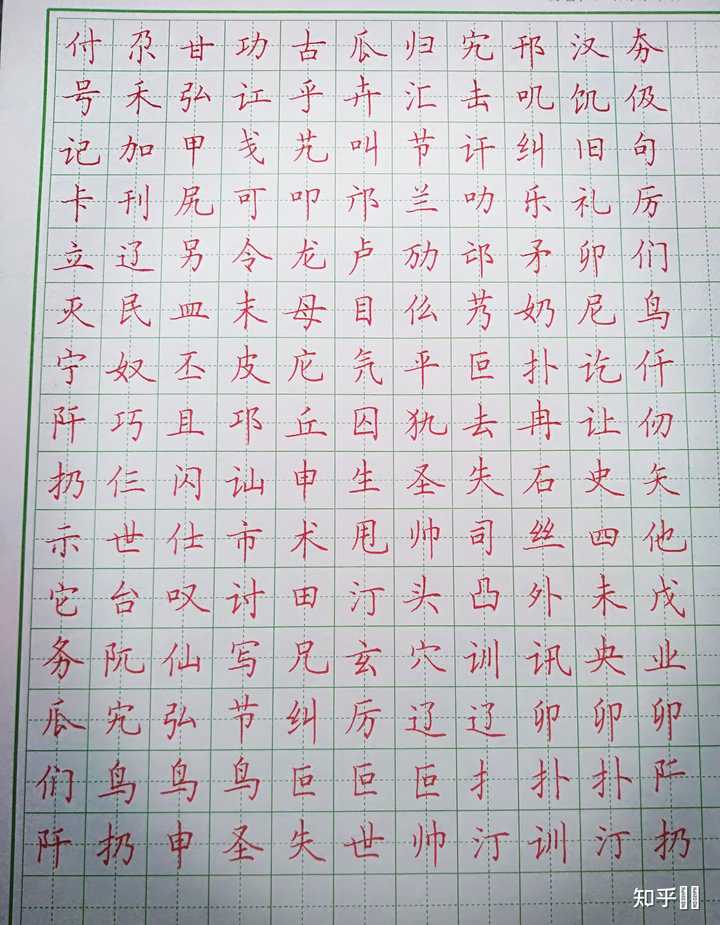 付尕甘功古瓜归宄邗汉夯
号禾弘讧乎卉汇击叽饥伋
记加甲戋艽叫节讦纠旧句
卡刊尻可叩邝兰叻乐礼厉
立辽另令龙卢劢邙矛卯们
灭民皿末母目仫艿奶尼鸟
宁奴丕皮庀氕平叵扑讫仟
阡巧且邛丘囚犰去冉让仞
扔仨闪讪申生圣失石史矢
示世仕市术甩帅司丝四他
它台叹讨田汀头凸外未戊
务阢仙写兄玄穴训讯央业
瓜宄弘节纠厉辽辽卯卯卯
们鸟鸟鸟叵叵叵扌扑扑阡
阡扔申圣失世帅汀训汀扔
知乎